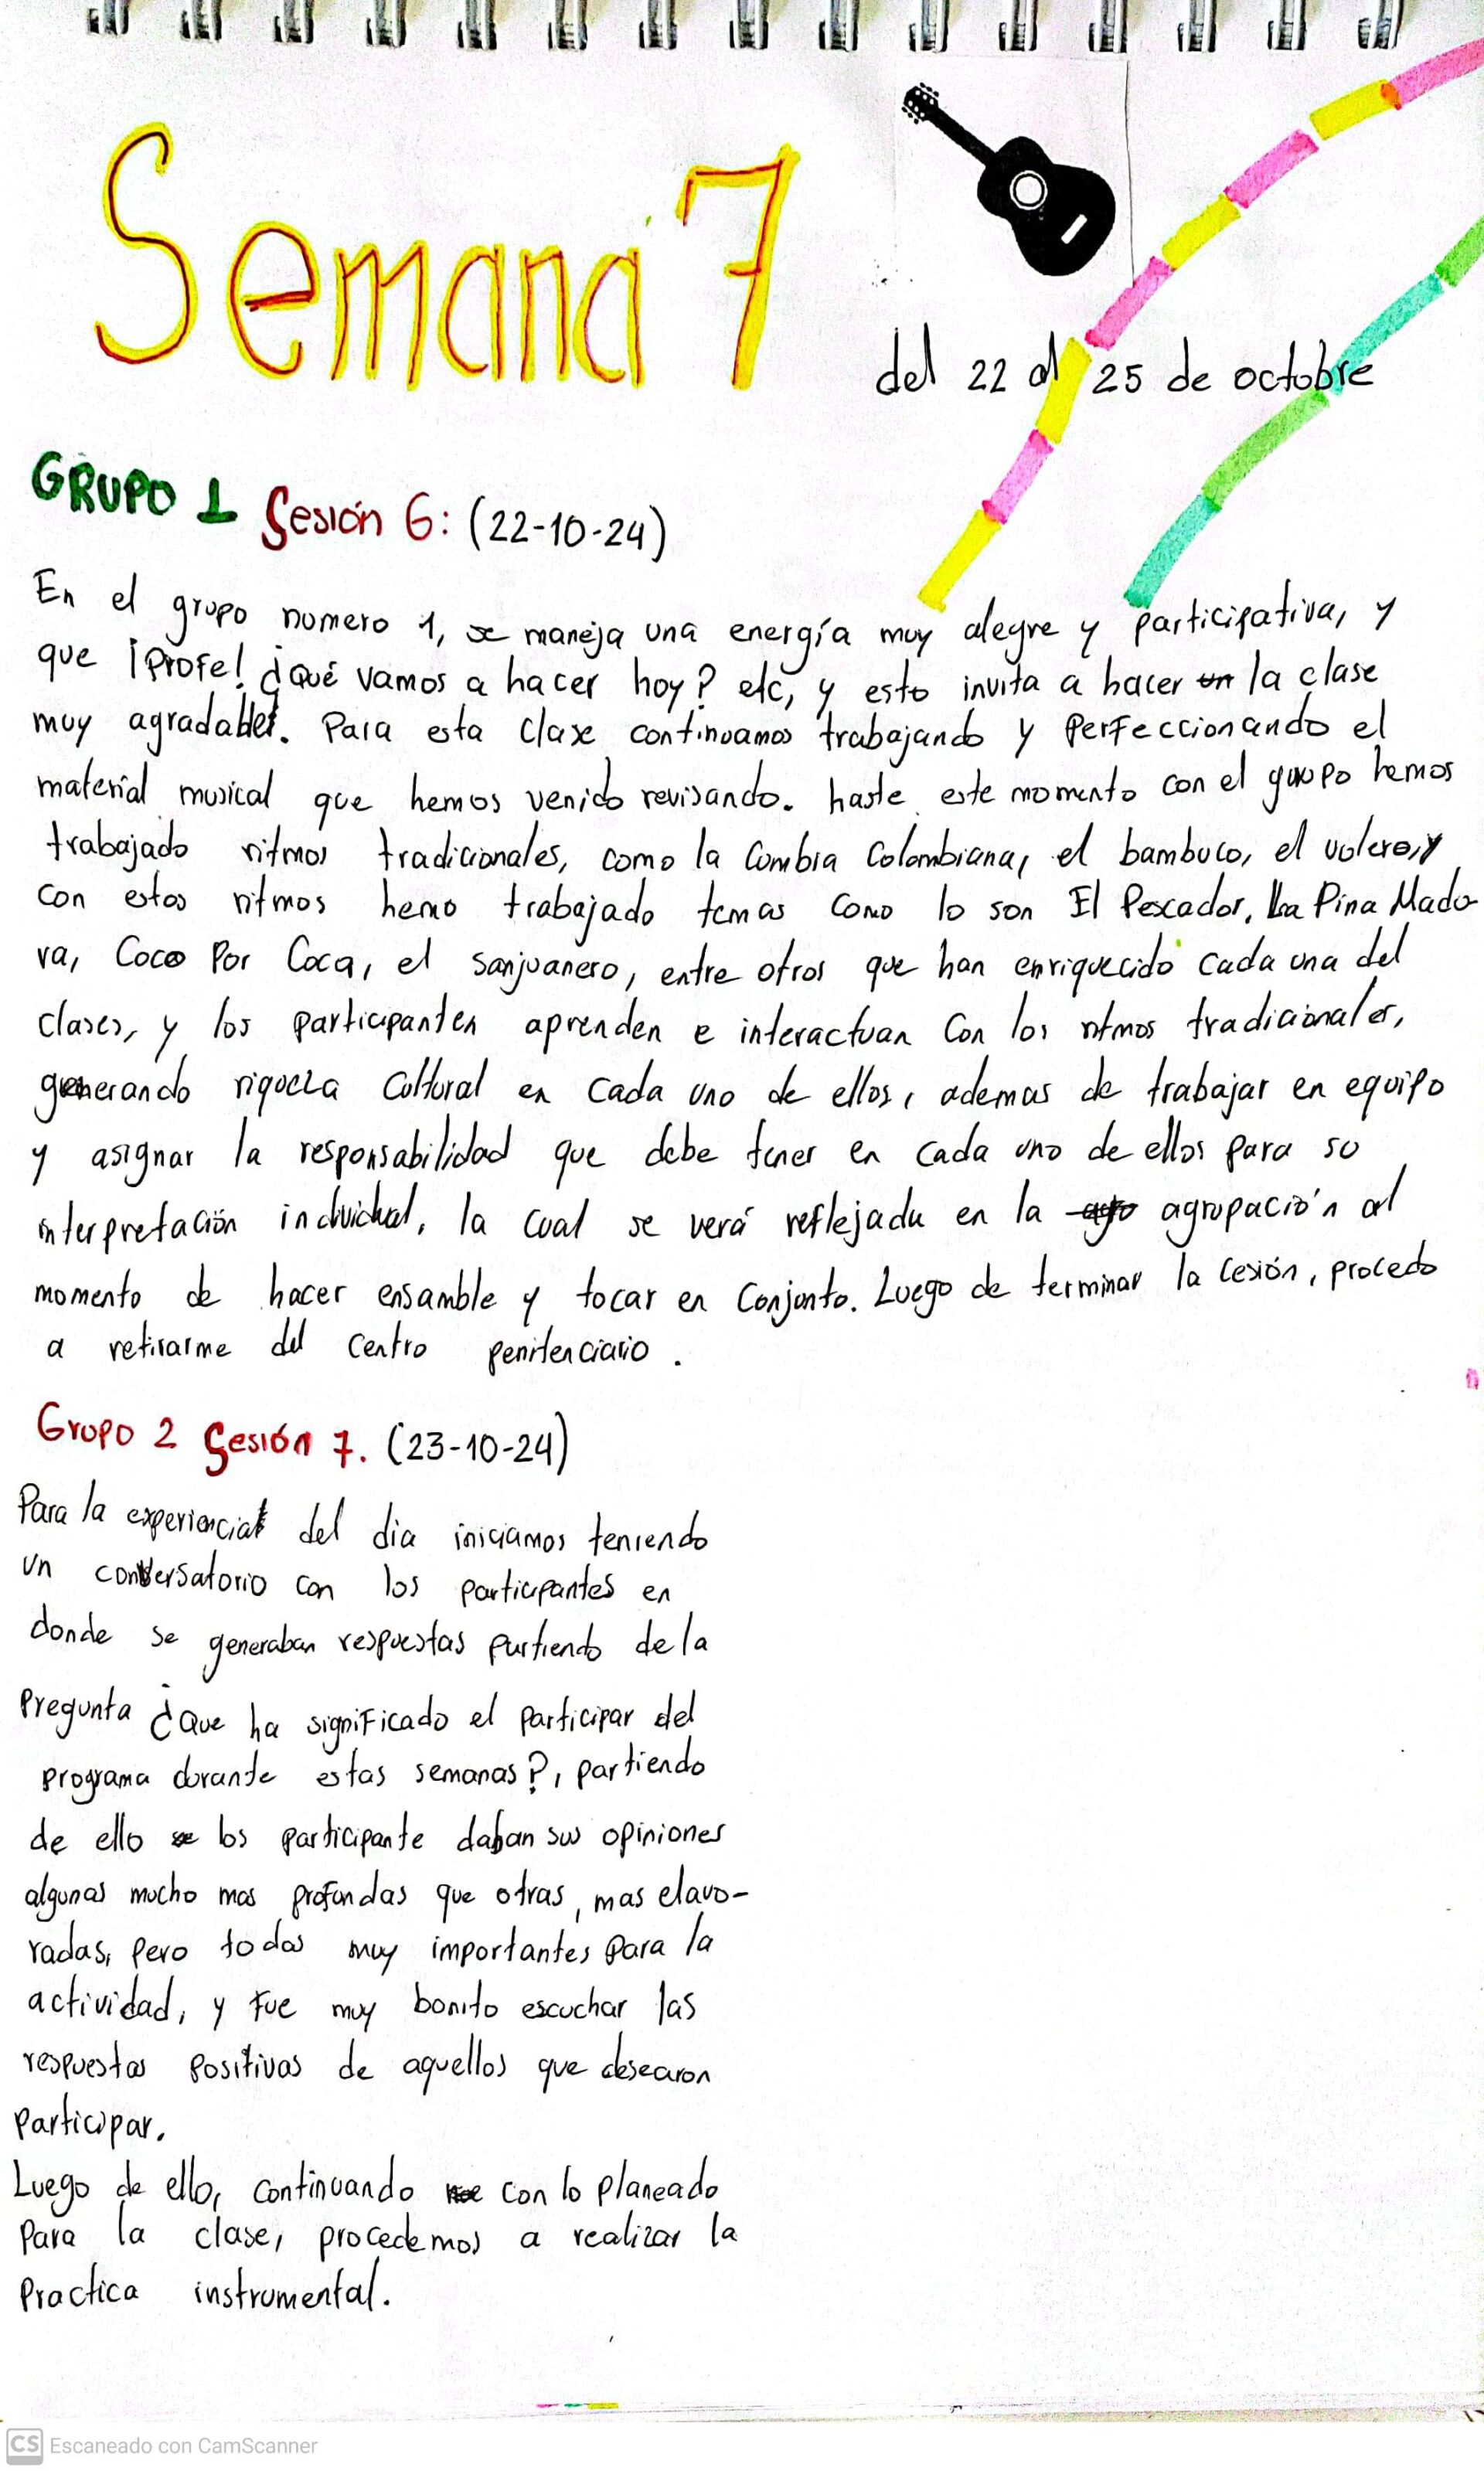 Semana 7
del 22 al 25 de octubre
GRUPO 1 Sesión 6: (22-10-24)
En el grupo numero 1, se maneja una energía muy alegre y participativa, y
que ¡Profe! ¿Qué vamos a hacer hoy? etc, y esto invita a hacer la clase
muy agradable. Para esta clase continuamos trabajando y perfeccionando el
material musical que hemos venido revisando. haste este momento con el grupo hemos
trabajado ritmos tradicionales, como la Cumbia Colombiana, el bambuco, el volero, y
con estos ritmos hemo trabajado temas como lo son El Pescador, La Pina Madu
ra, Coco Por Coca, el sanjuanero, entre otros que han enriquecido cada una del
clases, y los participanten aprenden e interactuan con los ritmos tradicionales,
generando riqueza cultural en cada uno de ellos, ademas de trabajar en equipo
y asignar la responsabilidad que debe tener en cada uno de ellos para su
interpretación individual, la cual se verá reflejada en la agrupación al
momento de hacer ensamble y tocar en conjunto. Luego de terminar la cesión, procedo
a retirarme del centro penitenciario.
Grupo 2 Sesión 7. (23-10-24)
Para la experiencia del dia iniciamos teniendo
un conversatorio con los participantes en
donde se generaban respuestas partiendo de la
pregunta ¿Que ha significado el participar del
programa durante estas semanas?, partiendo
de ello los participante daban sus opiniones
algunas mucho mas profundas que otras, mas elavo-
radas, pero todas muy importantes para la
actividad, y fue muy bonito escuchar las
respuestas positivas de aquellos que desearon
participar.
Luego de ello, continuando con lo planeado
para la clase, procedemos a realizar la
practica instrumental.
CS Escaneado con CamScanner